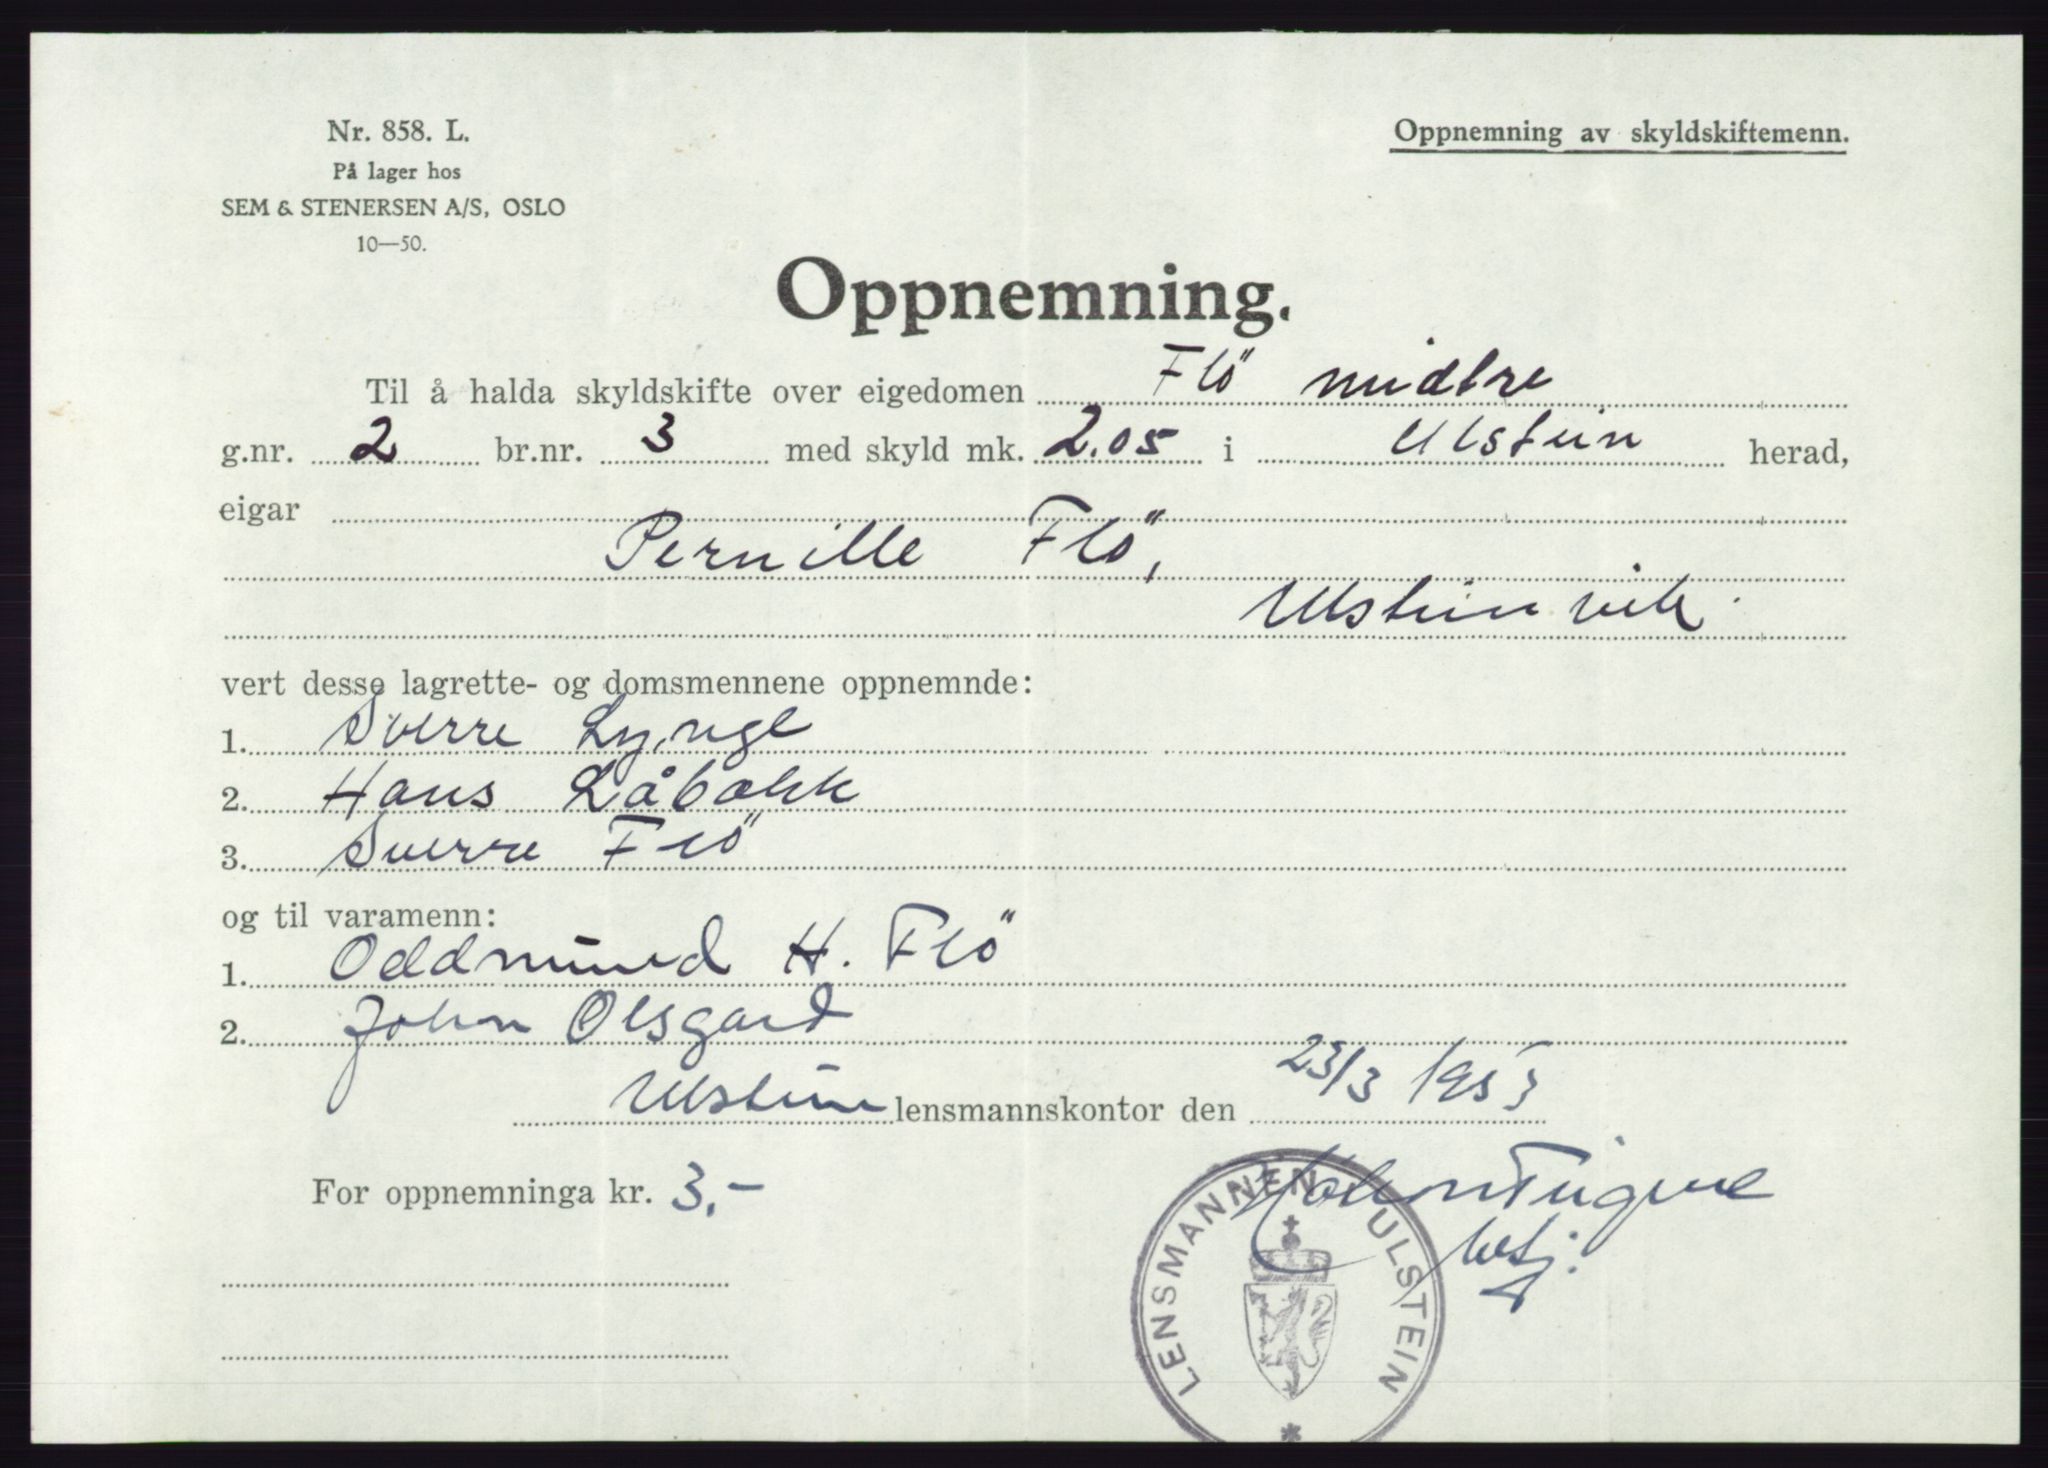 Nr. 858. L.
På lager hos
SEM & STENERSEN A/S, OSLO
10—50.
Oppnemning av skyldskiftemenn.
Oppnemning.
Til å halda skyldskifte over eigedomen Flö midtre
g.nr. 2 br.nr. 3 med skyld mk. 2.05 i Ulstein herad,
eigar
Pernille Flö,
Ulsteinvik.
vert desse lagrette- og domsmennene oppnemnde:
1. Sverre Lynge
2. Hans Låbakk
3. Sverre Flö
og til varamenn:
1. Oddmund H. Flö
2. John Olsgard
Ulstein lensmannskontor den 23/3 1953
For oppnemninga kr. 3,-
LENSMANNEN I ULSTEIN